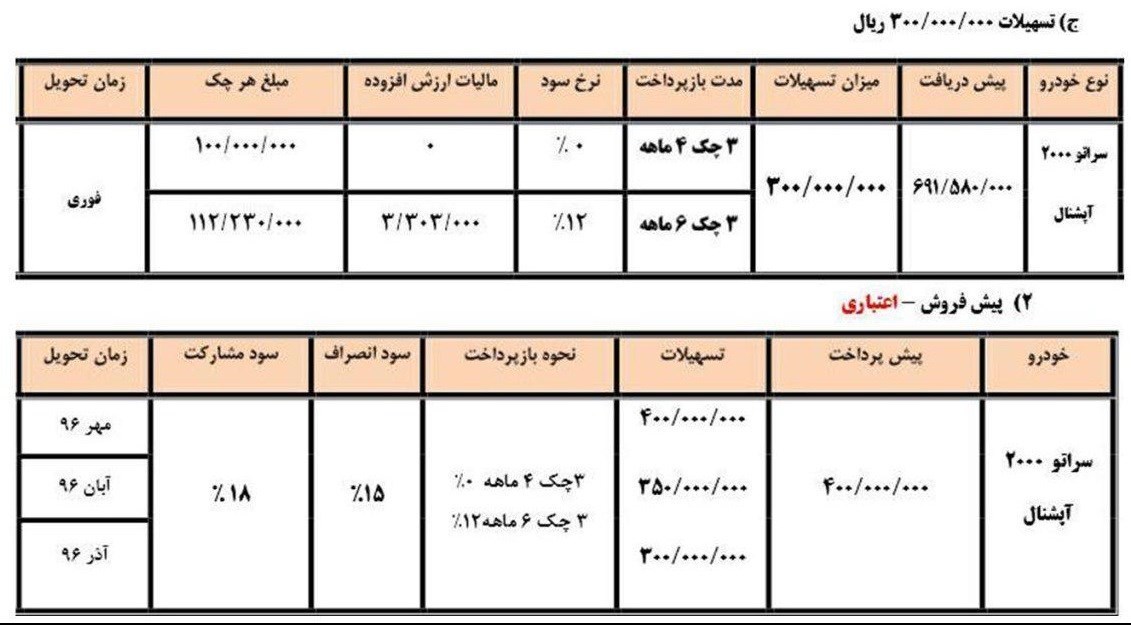 ج) تسهیلات ۳۰۰/۰۰۰/۰۰۰ ریال
نوع خودرو پیش دریافت میزان تسهیلات مدت بازپرداخت نرخ سود مالیات ارزش افزوده مبلغ هر چک زمان تحویل
سراتو ۲۰۰۰ آپشنال ۶۹۱/۵۸۰/۰۰۰ ۳۰۰/۰۰۰/۰۰۰ ۳ چک ۴ ماهه ۰ ٪ ۰ ۱۰۰/۰۰۰/۰۰۰ فوری
۳ چک ۶ ماهه ۱۲٪ ۳/۳۰۳/۰۰۰ ۱۱۲/۲۳۰/۰۰۰
۲) پیش فروش – اعتباری
خودرو پیش پرداخت تسهیلات نحوه بازپرداخت سود انصراف سود مشارکت زمان تحویل
سراتو ۲۰۰۰ آپشنال ۴۰۰/۰۰۰/۰۰۰
۴۰۰/۰۰۰/۰۰۰
۳۵۰/۰۰۰/۰۰۰
۳۰۰/۰۰۰/۰۰۰
۳چک ۴ ماهه ۰٪
۳ چک ۶ ماهه۱۲٪
۱۵٪
۱۸ ٪
مهر ۹۶
آبان ۹۶
آذر ۹۶